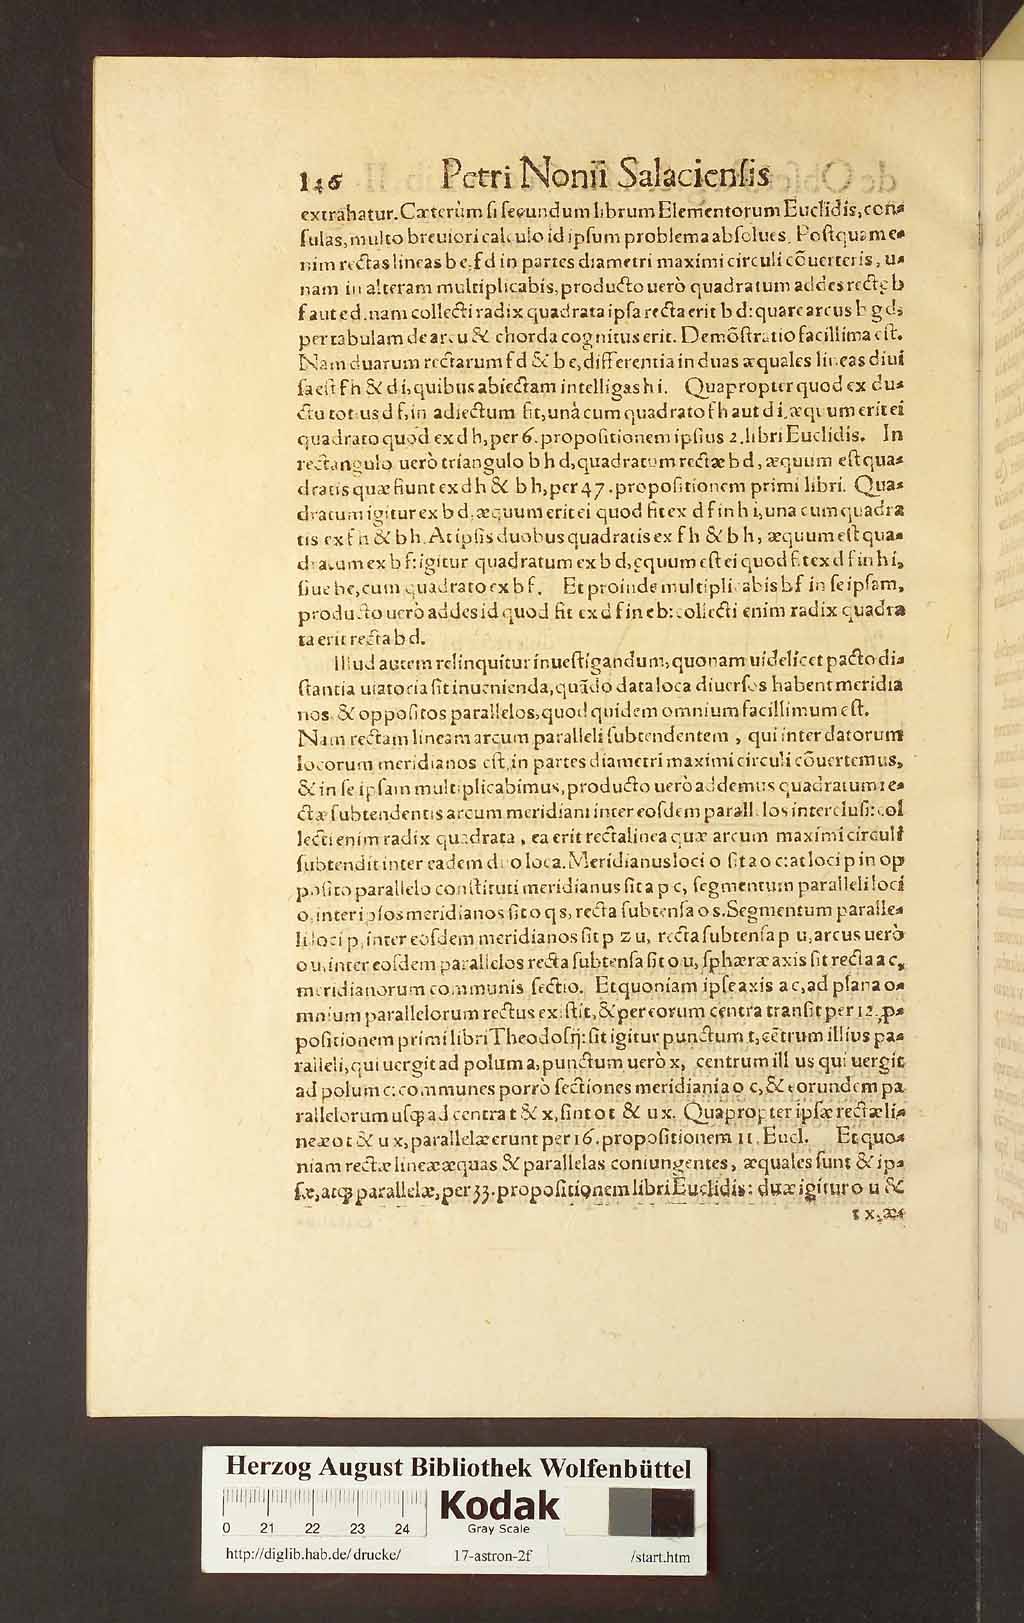 146 Petri Nonij Salaciensis
extrahatur. Cæterùm si secundum librum Elementorum Euclidis, con-
sulas, multo breuiori calculo id ipsum problema absolues. Postquam e-
nim rectas lineas b e, f d in partes diametri maximi circuli cõuerteris, u-
nam in alteram multiplicabis, producto uerò quadratum addes rectę b
f aut e d. nam collecti radix quadrata ipsa recta erit b d: quare arcus b g d,
per tabulam de arcu & chorda cognitus erit. Demõstratio facillima est.
Nam duarum rectarum f d & b e, differentia in duas æquales lineas diui
sa est f h & d i, quibus abiectam intelligas h i. Quapropter quod ex du-
ctu totius d f, in adiectum fit, unà cum quadrato f h aut d i, æquum erit ei
quadrato quod ex d h, per 6. propositionem ipsius 2. libri Euclidis. In
rectangulo uerò triangulo b h d, quadratum rectæ b d, æquum est qua-
dratis quæ fiunt ex d h & b h, per 47. propositionem primi libri. Qua-
dratum igitur ex b d, æquum erit ei quod fit ex d f in h i, una cum quadra
tis ex f h & b h. At ipsis duobus quadratis ex f h & b h, æquum est qua-
dratum ex b f: igitur quadratum ex b d, ęquum est ei quod fit ex d f in h i,
siue be, cum quadrato ex b f. Et proinde multiplicabis b f in se ipsam,
producto uerò addes id quod fit ex d f in e b: collecti enim radix quadra
ta erit recta b d.
Illud autem relinquitur inuestigandum, quonam uidelicet pacto di-
stantia uiatoria sit inuenienda, quãdo data loca diuersos habent meridia
nos, & oppositos parallelos, quod quidem omnium facillimum est.
Nam rectam lineam arcum paralleli subtendentem, qui inter datorum
locorum meridianos est, in partes diametri maximi circuli cõuertemus,
& in se ipsam multiplicabimus, producto uerò addemus quadratum re-
ctæ subtendentis arcum meridiani inter eosdem parallelos interclusi: col
lecti enim radix quadrata, ea erit recta linea quæ arcum maximi circuli
subtendit inter eadem duo loca. Meridianus loci o sit a o c: at loci p in op
posito parallelo constituti meridianus sit a p c, segmentum paralleli loci
o, inter ipsos meridianos sit o q s, recta subtensa o s. Segmentum paralle-
li loci p, inter eosdem meridianos sit p z u, recta subtensa p u, arcus uerò
o u, inter eosdem parallelos recta subtensa sit o u, sphæræ axis sit recta a c,
meridianorum communis sectio. Et quoniam ipse axis a c, ad plana o-
mnium parallelorum rectus existit, & per eorum centra transit per 12. ꝓ-
positionem primi libri Theodosij: sit igitur punctum t, cẽtrum illius pa-
ralleli, qui uergit ad polum a, punctum uerò x, centrum illius qui uergit
ad polum c: communes porrò sectiones meridiani a o c, & eorundem pa
rallelorum usq́; ad centra t & x, sint o t & u x. Quapropter ipsæ rectæ li-
neæ o t & u x, parallelæ erunt per 16. propositionem 11. Eucl. Et quo-
niam rectæ lineæ æquas & parallelas coniungentes, æquales sunt & ip-
sæ, atq́; parallelæ, per 33. propositionem libri Euclidis: duæ igitur o u &
t x, æq
Herzog August Bibliothek Wolfenbüttel
0 21 22 23 24
Kodak
Gray Scale
http://diglib.hab.de/drucke/ 17-astron-2f /start.htm